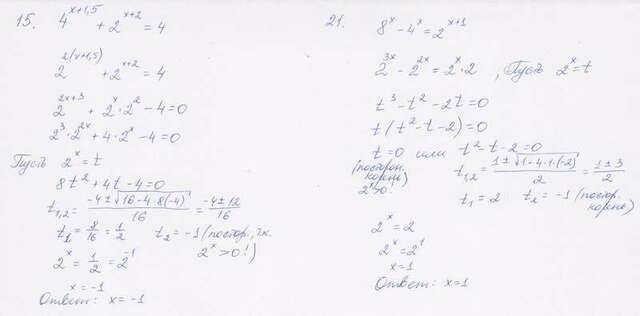 15. 4^{x+1,5} + 2^{x+2} = 4
2^{2(x+1,5)} + 2^{x+2} = 4
2^{2x+3} + 2^x · 2^2 - 4 = 0
2^3 · 2^{2x} + 4 · 2^x - 4 = 0
Пусть 2^x = t
8t^2 + 4t - 4 = 0
t_{1,2} = \frac{-4 ± \sqrt{16 - 4 · 8(-4)}}{16} = \frac{-4 ± 12}{16}
t_1 = \frac{8}{16} = \frac{1}{2} t_2 = -1 (постор., т.к.
2^x > 0!)
2^x = \frac{1}{2} = 2^{-1}
x = -1
Ответ: x = -1
21. 8^x - 4^x = 2^{x+1}
2^{3x} - 2^{2x} = 2^x · 2, Пусть 2^x = t
t^3 - t^2 - 2t = 0
t(t^2 - t - 2) = 0
t = 0 или t^2 - t - 2 = 0
(посторон. корень 2^x > 0!)
t_{1,2} = \frac{1 ± \sqrt{1 - 4 · 1 · (-2)}}{2} = \frac{1 ± 3}{2}
t_1 = 2 t_2 = -1 (постор. корень)
2^x = 2
2^x = 2^1
x = 1
Ответ: x = 1